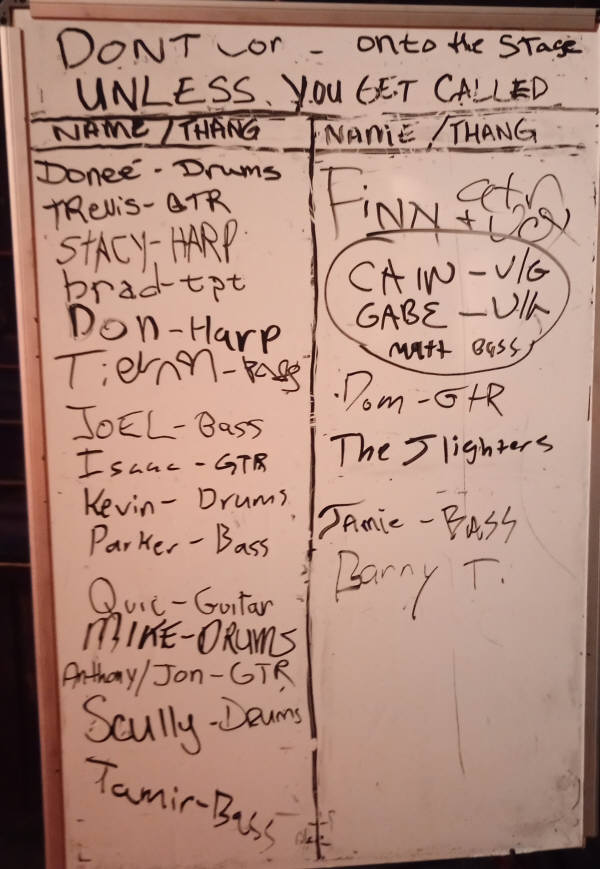 DONT onto the STAGE
UNLESS. YOU GET CALLED
NAME/THANG
Doneé - Drums
tREVIS - GTR
STACY - HARP
brad - tpt
Don - Harp
Tiernan - BASS
JOEL - Bass
Isaac - GTR
Kevin - Drums
Parker - Bass
Quic - Guitar
MIKE - DRUMS
Anthony/Jon - GTR
Scully - Drums
Tamir - Bass
NAME/THANG
FiNN
CAIN - V/G
GABE - V/
MATT BASS
Dom - GTR
The Slighters
Jamie - BASS
Barry T.